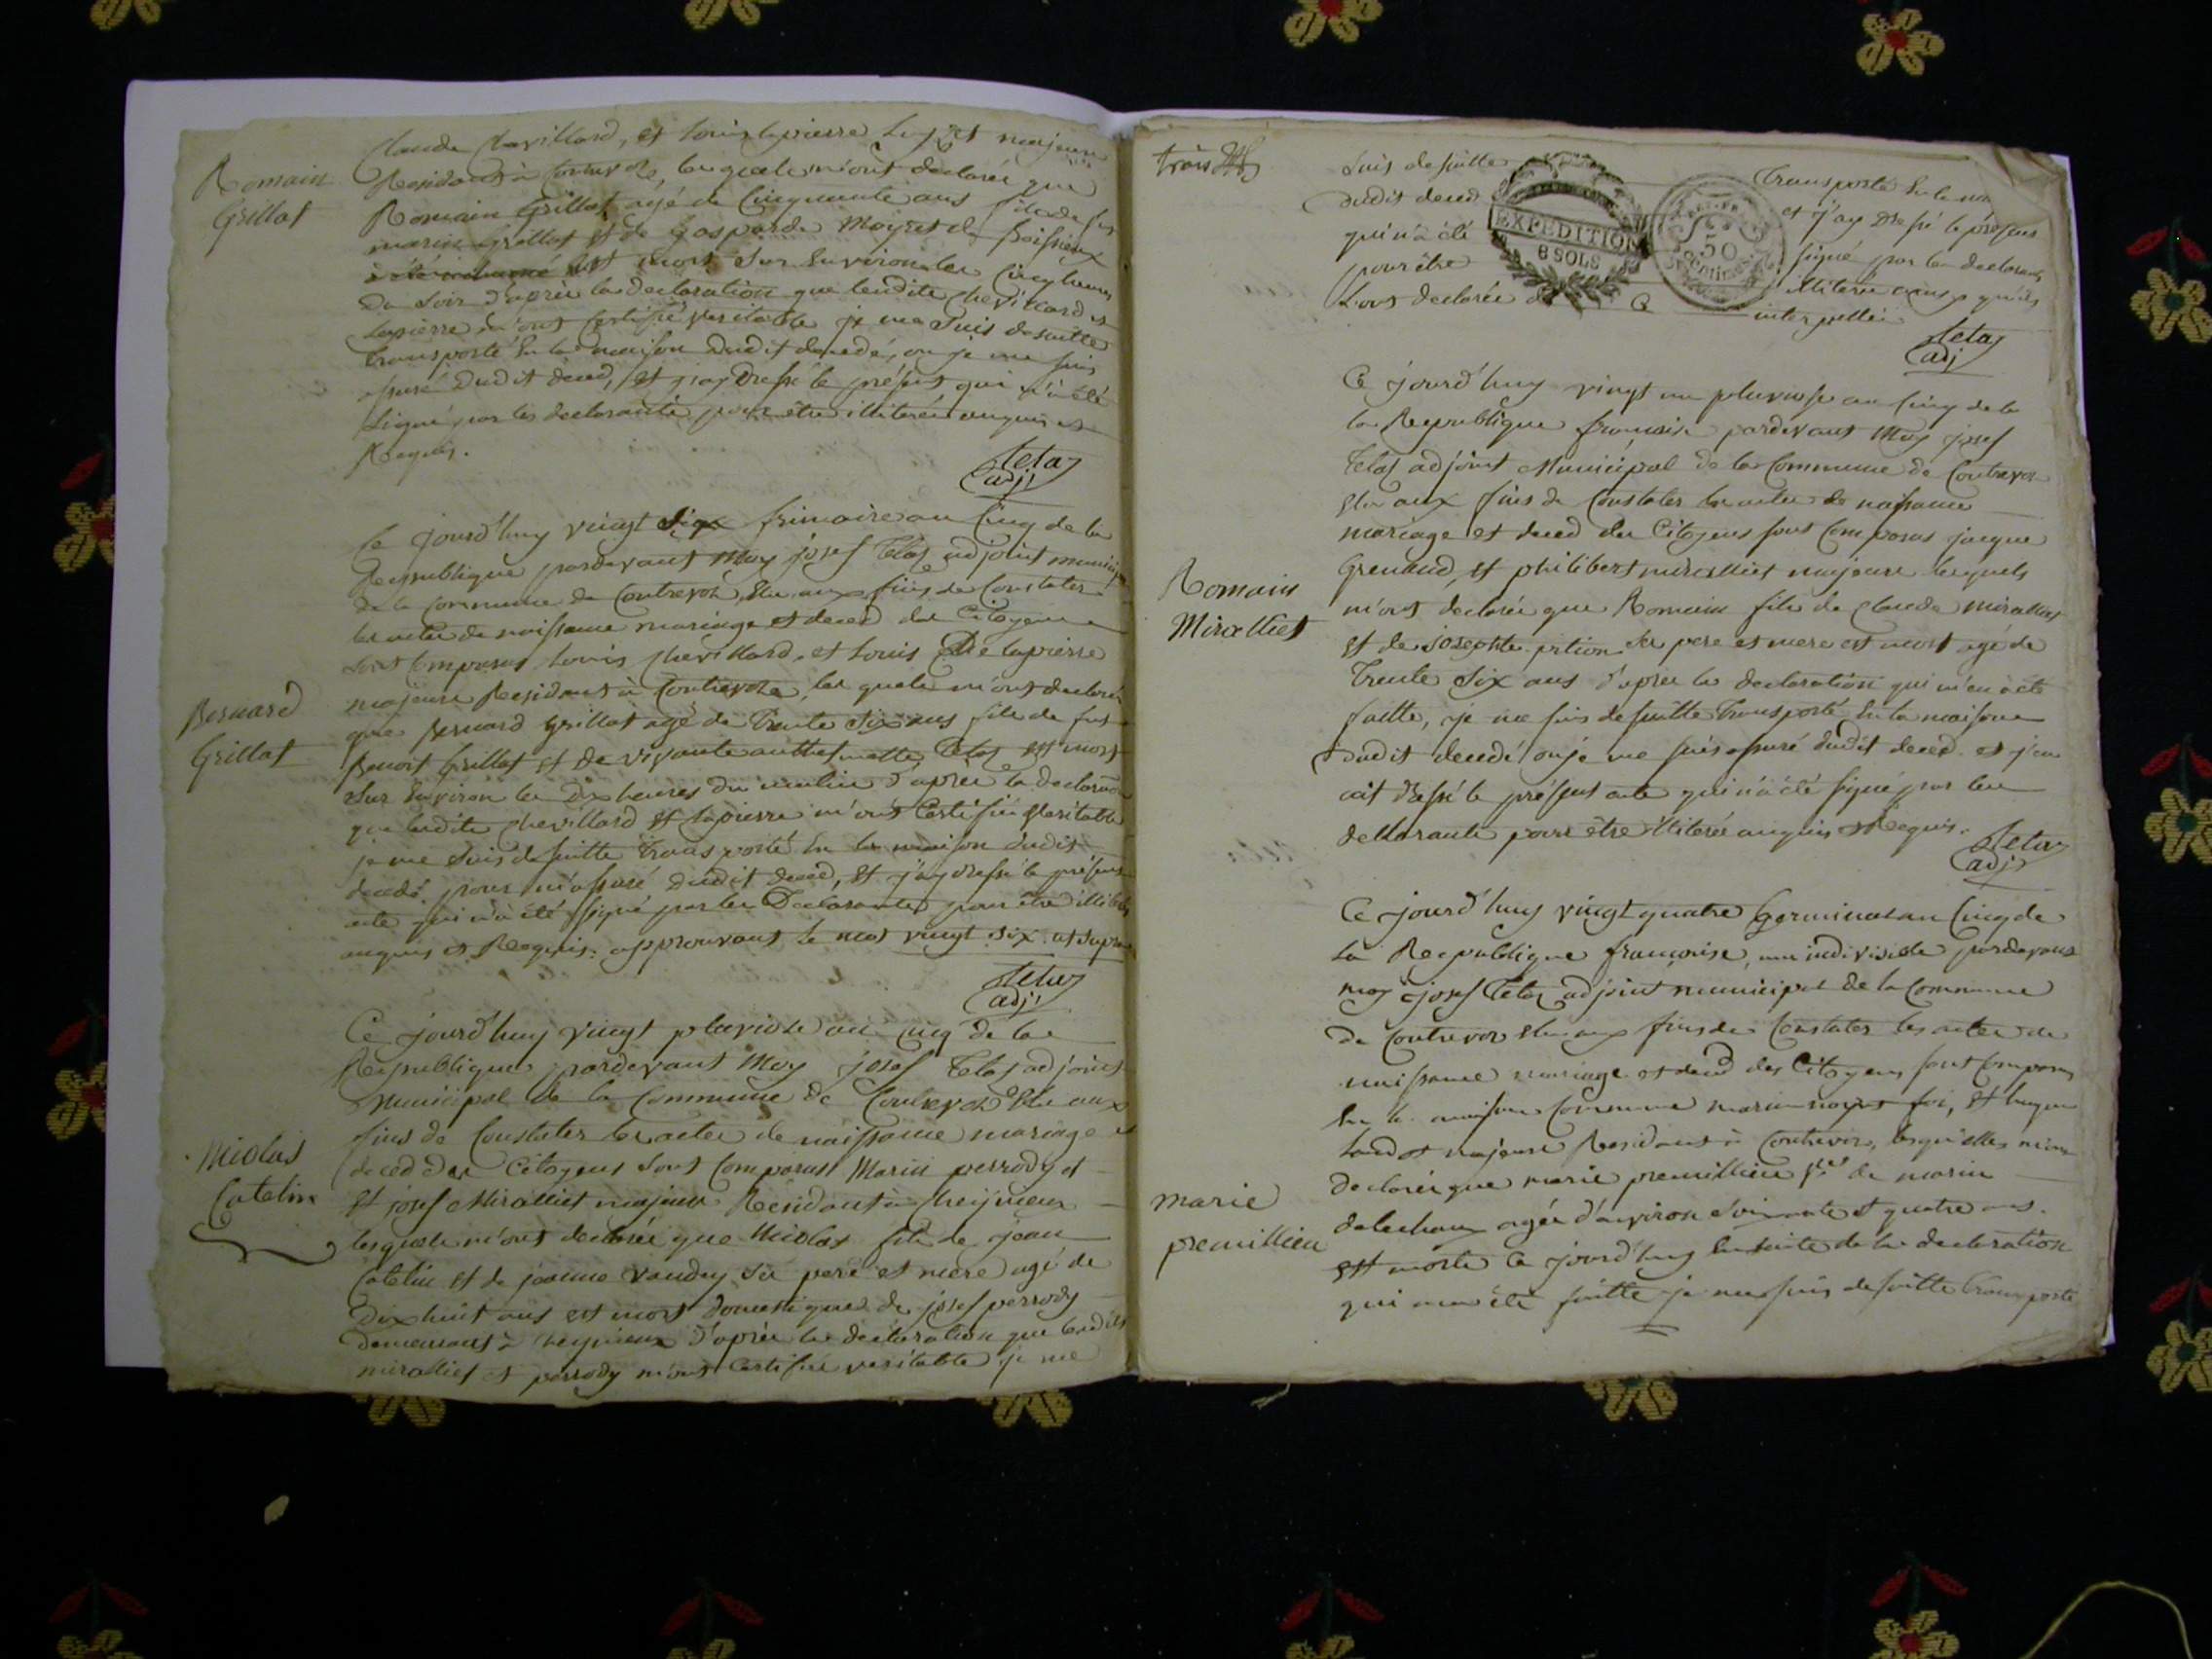 Claude Chavillard, et Louis lapierre majeurs
Romain
Grillat
Residants à Contrevoz, lesquels m'ont declarés que
Romain Grillat agé de Cinquante ans fils de feu
marin Grillat et de Gasparde Moyret
est mort sur Environ les Cinq heures
du soir d'après la declaration que lesdits chevillard et
lapierre m'ont certifié veritable je me suis desuitte
transporté En la maison dudit decedé, ou je me suis
assuré dudit deced, et j'ay dressé le présent qui n'a été
signé par les declarants pour être illiterés enquis et
Requis.
Tetaz
adj
Ce jourd'huy vingt six frimaire an Cinq de la
Republique pardevant Moy josef Tetaz adjoint municipal
de la Commune de Contrevoz, Elu aux fins de Constater
les actes de naissance mariage et deced des Citoyens
sont Comparus Louis chevillard, et Louis lapierre
majeurs Residants à Contrevoz, les quels m'ont declarés
Bernard
Grillat
que Bernard Grillat agé de Trente Six ans fils de feu
Benoit Grillat et de vivante Tetaz est mort
Sur Environ les Dix heures du matin d'après la declaration
que lesdits chevillard et lapierre m'ont Certifié Veritable
je me suis desuitte Transporté En la maison dudit
decedé pour m'assuré dudit deced, et j'ay dressé le présent
acte qui n'a été signé par les Declarants pour être illiterés
enquis et Requis. approuvant le mot vingt six
Tetaz
adj
Ce jourd'huy vingt pluviose an cinq de la
Republique pardevant Moy josef Tetaz adjoint
Municipal de la Commune de Contrevoz Elu aux
fins de Constater les actes de naissance mariage et
Nicolas
Catelin
deced des Citoyens sont Comparus Marin perrody et
et josef Miralliet majeurs Residants à cheignieux
lesquels m'ont declarés que Nicolas fils de jean
Catelin et de jeanne vauday ses pere et mere agé de
Dix huit ans est mort domestique de josef perrody
demeurant à cheignieux d'après la declaration que lesdits
miralliet et perrody m'ont Certifié veritable je me
trois
suis desuitte Transporté En la
dudit deced et j'ay dressé le présent
qui n'a été signé par les declarants
pour être illiterés ainsy qu'ils
L'ont declarés de ce interpellés
EXPEDITION
8 SOLS
50
centimes
Tetaz
adj
Ce jourd'huy vingt un pluviose an Cinq de la
la Republique francaise pardevant Moy josef
Tetaz adjoint Municipal de la Commune de Contrevoz
Elu aux fins de Constater les actes de naissance
mariage et deced des Citoyens sont Comparus jacque
Romain
Miralliet
Grenaud, et philibert miralliet majeurs lesquels
m'ont declarés que Romain fils de claude miralliet
et de josephte pition ses pere et mere est mort agé de
Trente Six ans d'après la declaration qui m'en a été
faitte, je me suis desuitte Transporté En la maison
dudit decedé ou je me suis assuré dudit deced et j'en
ait dressé le présent acte qui n'a été signé par les
declarants pour être illiterés enquis et Requis.
Tetaz
adj
Ce jourd'huy vingt quatre Germinal an Cinq de
la Republique francaise, une indivisible pardevant
moy josef Tetaz adjoint municipal de la Commune
de Contrevoz Elu aux fins de Constater les actes de
naissance mariage et deced des Citoyens sont Comparus
En la maison Commune marin et
majeurs Residants à Contrevoz, lesquelles m'ont
marie
premillieu
declarés que marie premillieu de marin
agée d'environ Soixante et quatre ans.
est morte ce jourd'huy En suite de la declaration
qui m'en été faitte je me suis desuitte transporté